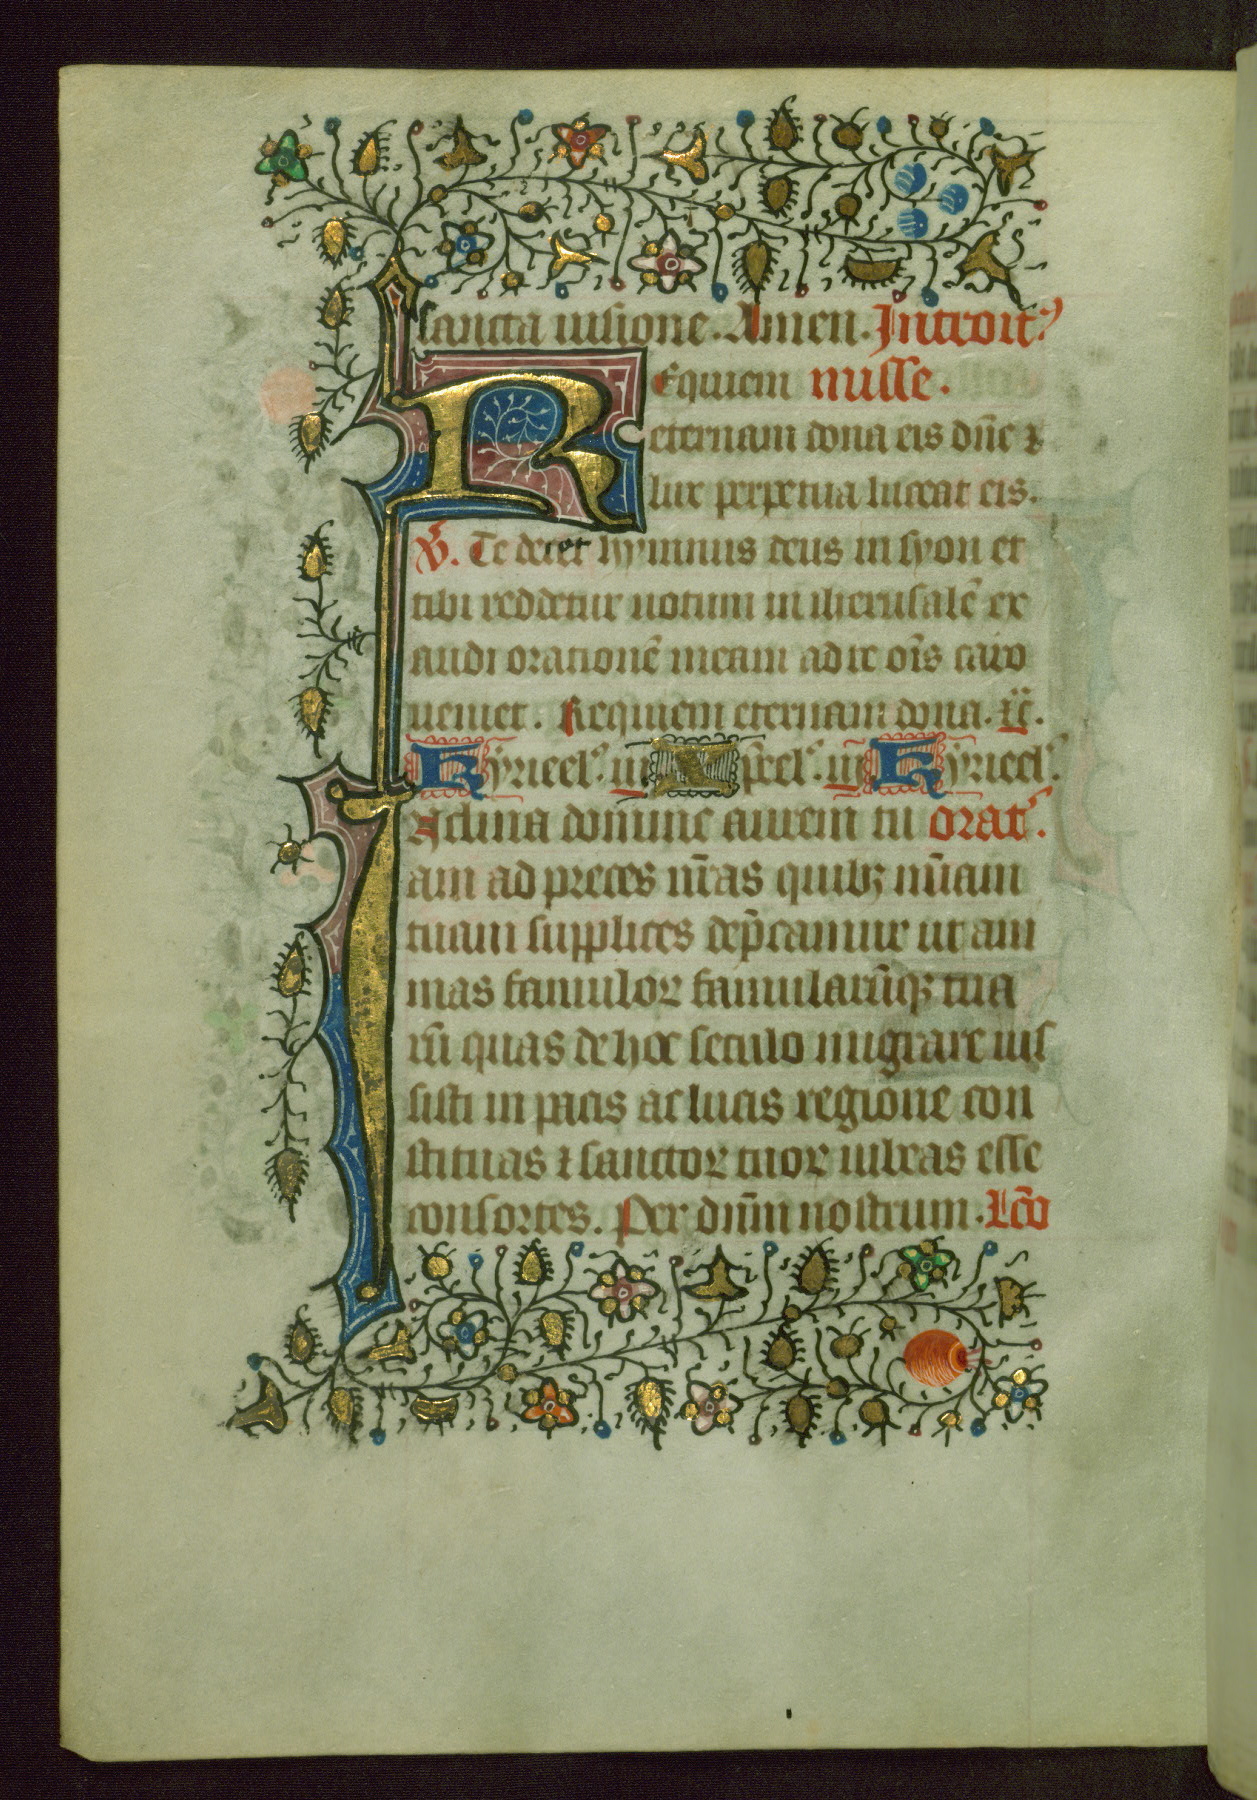 sancta uisione. Amen. Introit᷒
Requiem misse.
eternam dona eis dn̄e ⁊
lux perpetua luceat eis.
V̄. Te decet hymnus deus in syon et
tibi reddetur uotum in iherusalē ex
audi orationē meam ad te oīs caro
ueniet. Requiem eternam dona. 
Kyrieel᷒. iij Xp̄eel᷒. iij Kyrieel᷒.
Inclina domine aurem tu orat᷒.
am ad preces nr̄as quibꝫ mīam
tuam supplices dep̄camur ut ani
mas famuloꝝ famularūqꝫ tua
rū quas de hoc seculo migrare ius
sisti in pacis ac lucis regione con
stituas ⁊ sanctoꝝ tuoꝝ iubeas esse
consortes. Per dn̄m nostrum. Lc̄o